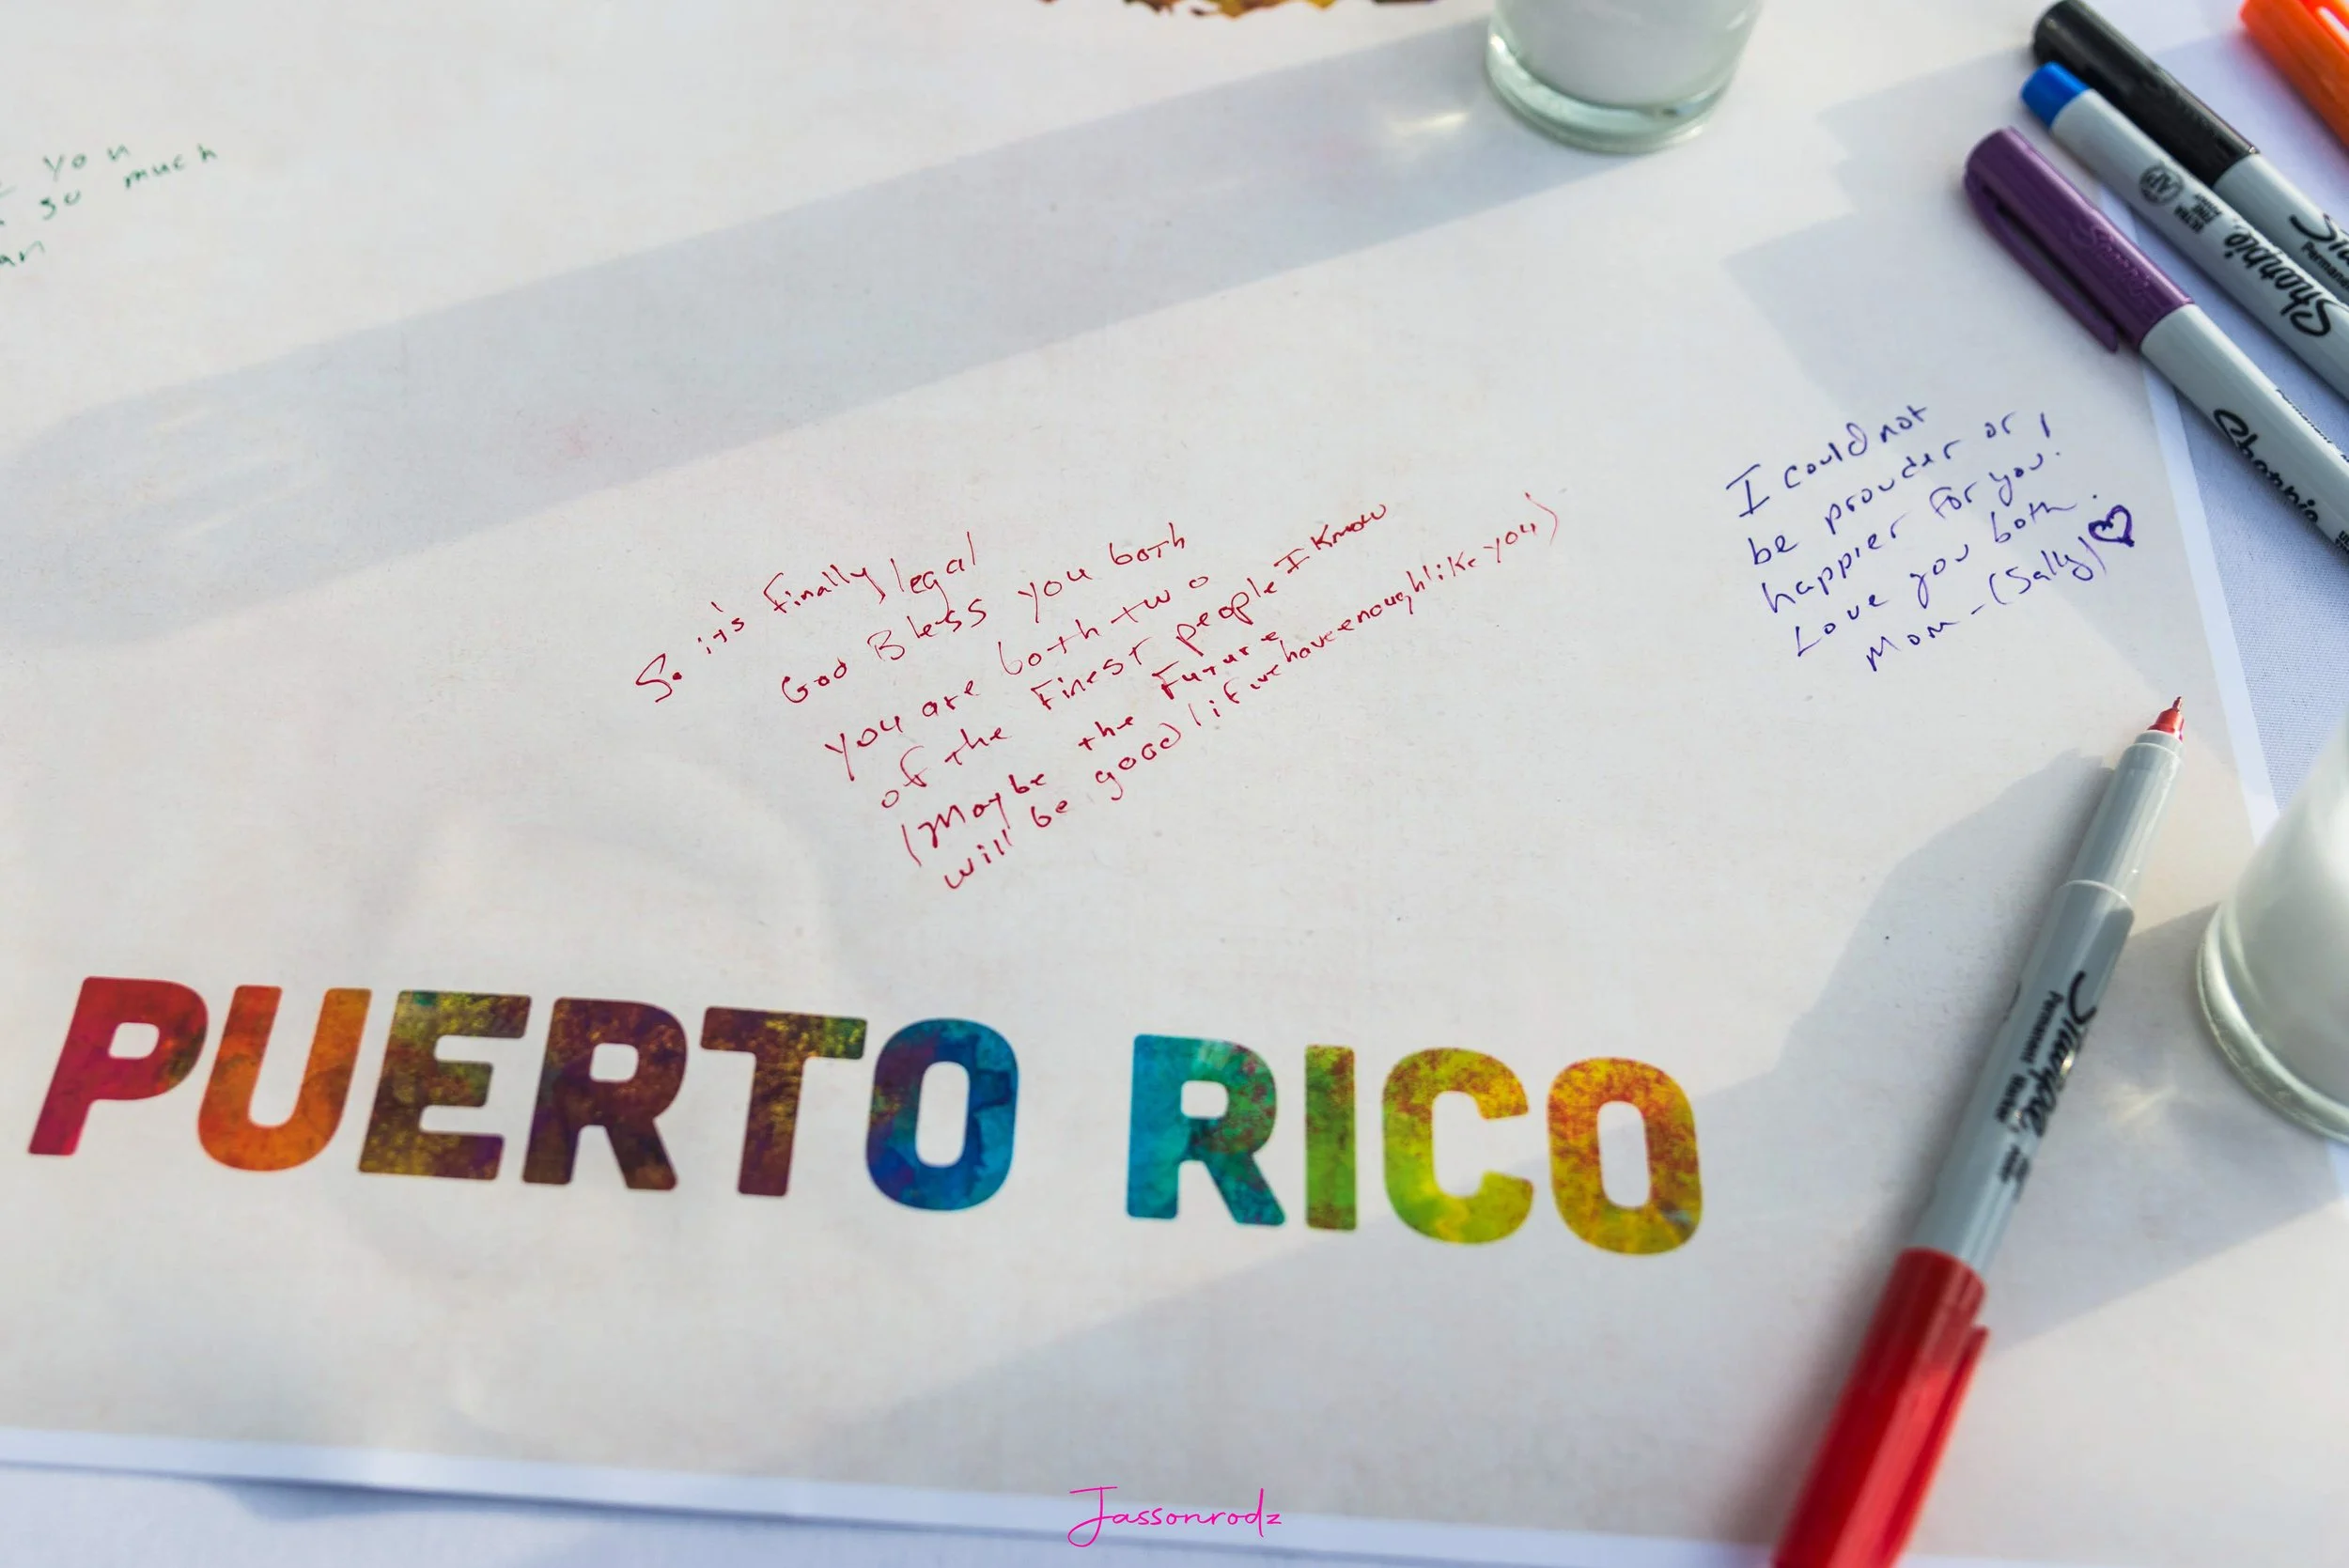 you
so much
So it's finally legal
God Bless you both
you are both two
of the Finest people I know
(Maybe the Future
will be good if we have enough like you)
I could not
be prouder or
happier for you!
Love you both.
Mom - (Sally)
PUERTO RICO
Sharpie
Sharpie
Sharpie
Permanent Marker
Jassonrodz